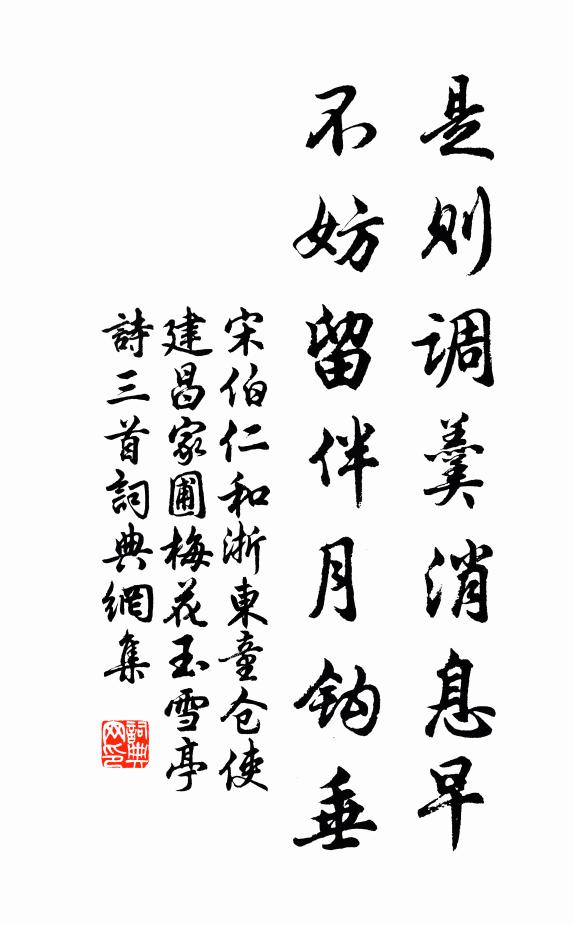 是则调羹消息早
不妨留伴月钩垂
宋伯仁和浙東童仓使
建昌家圃梅花玉雪亭
詩三首詞典網集
詞典